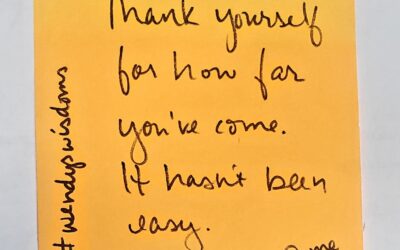 Thank yourself
for how far
you've come.
It hasn't been
easy.
#wendyswisdoms